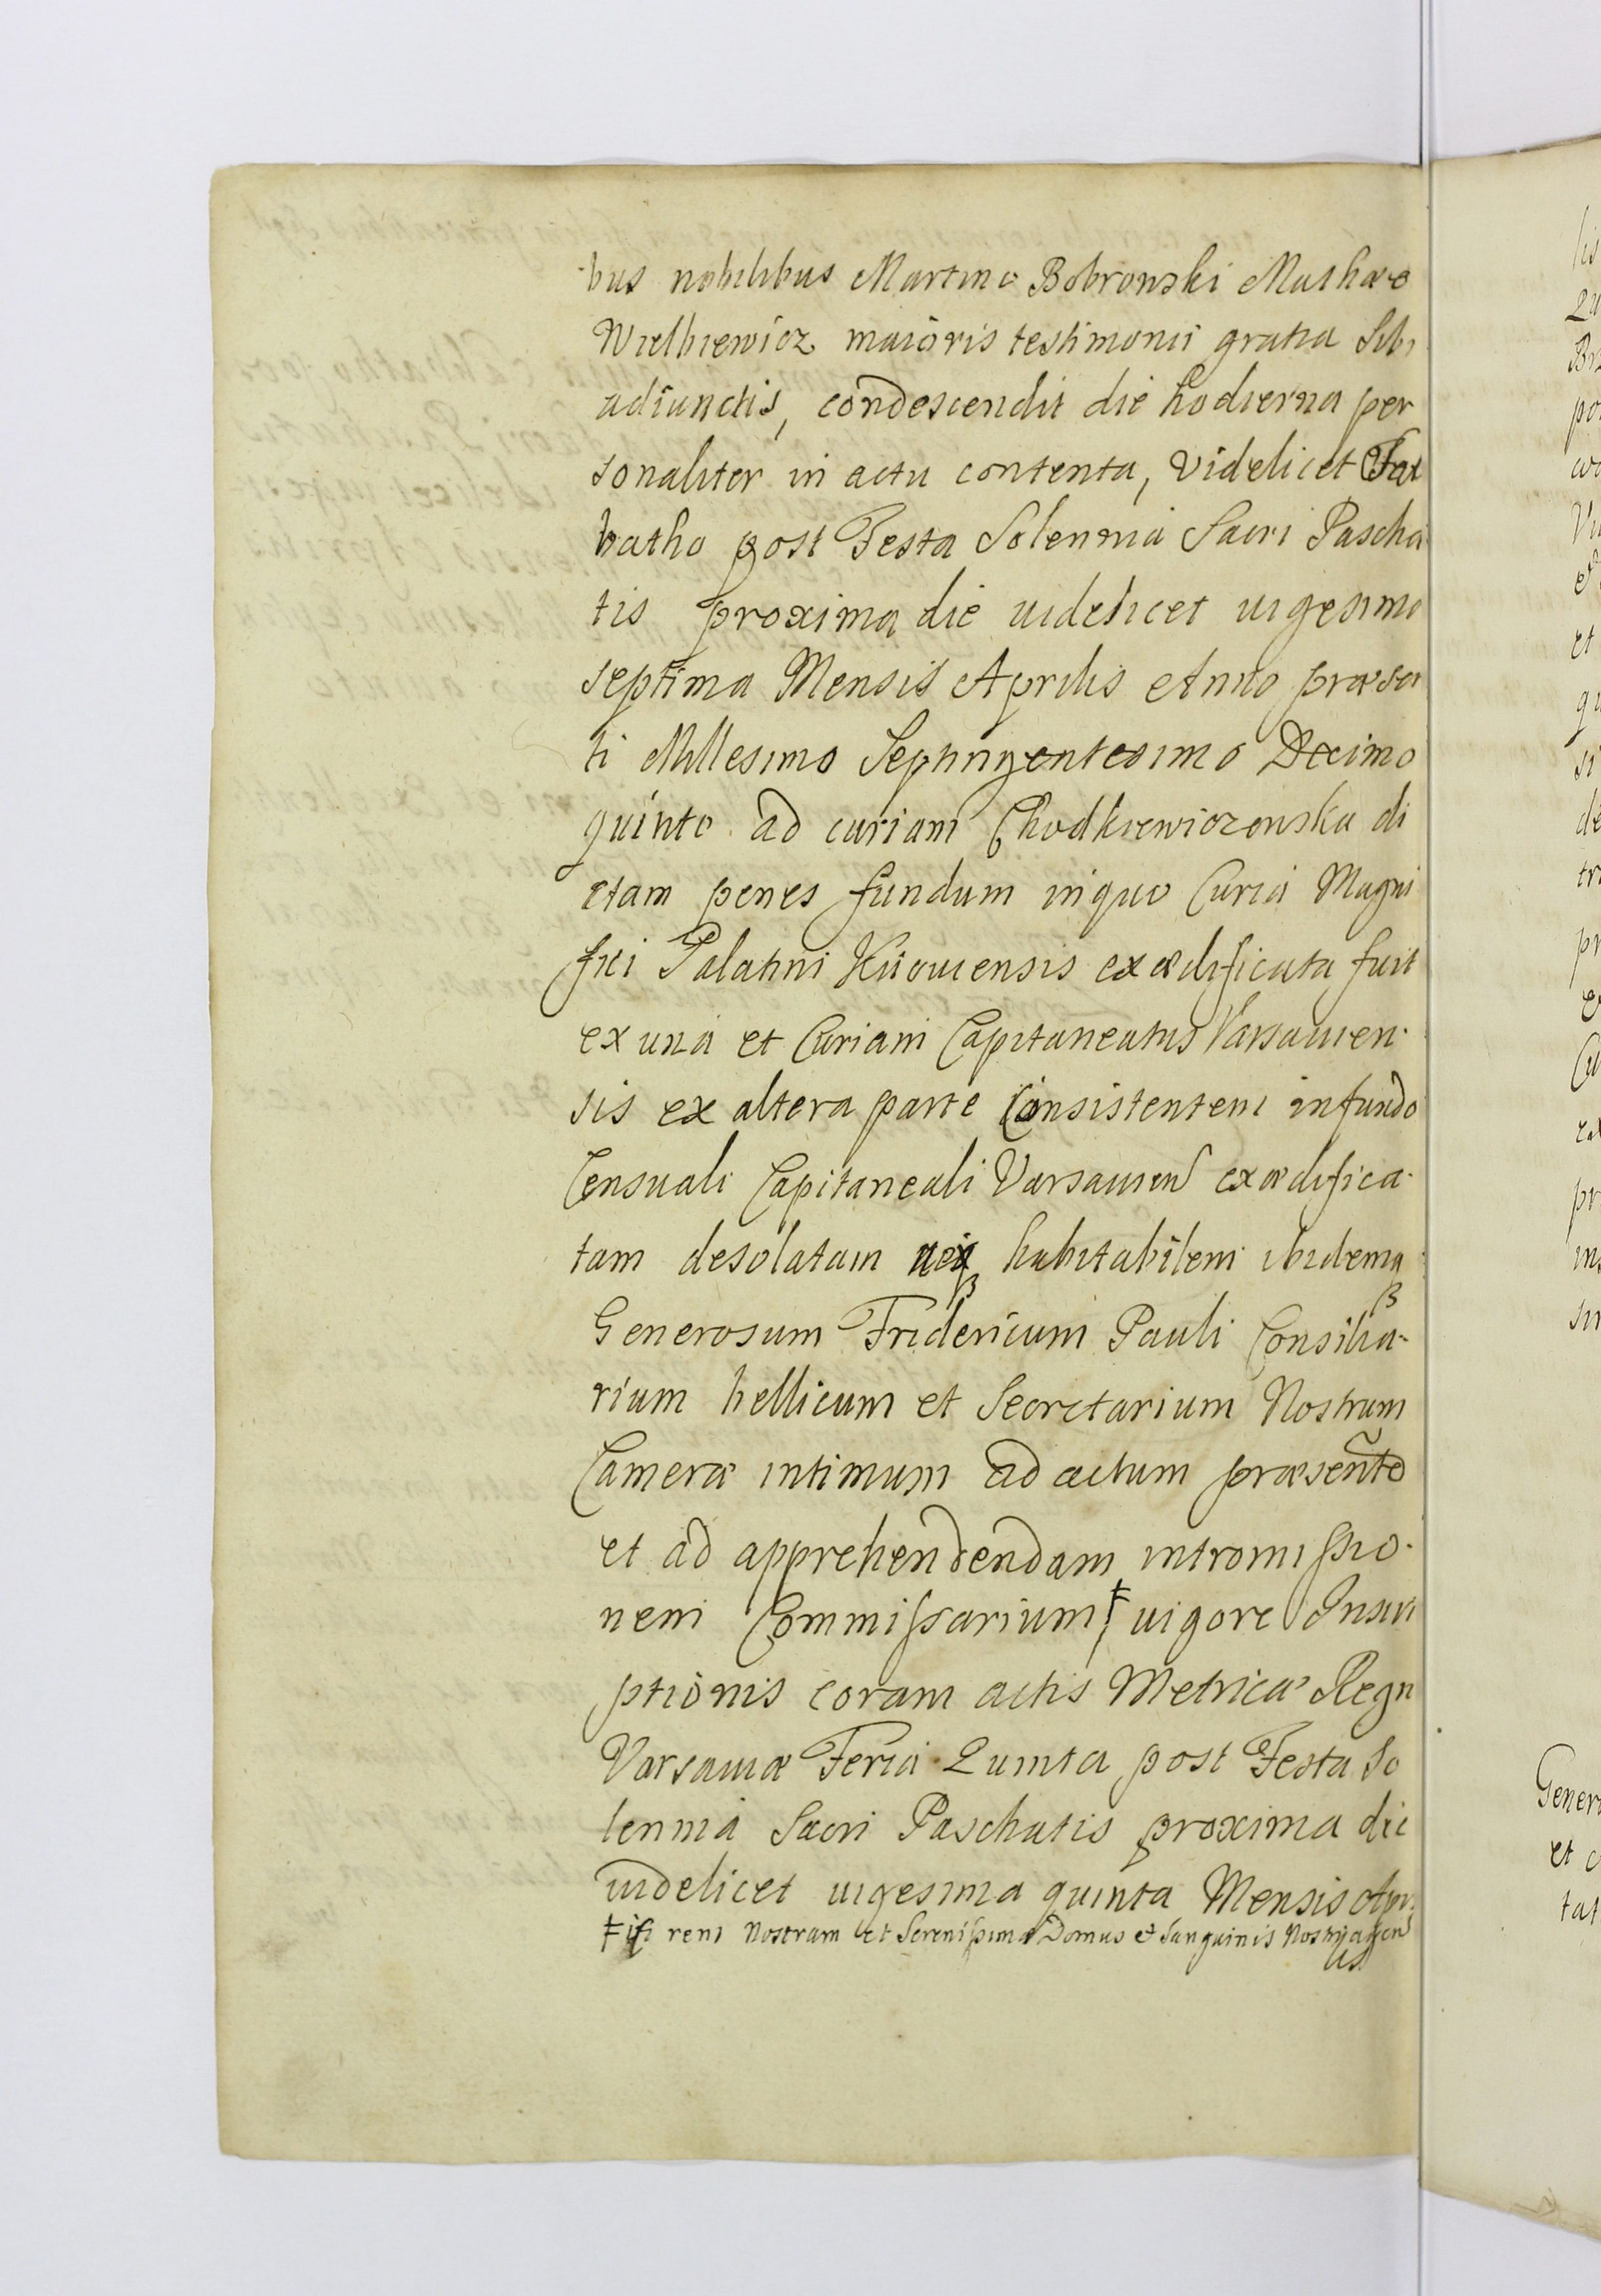 bus nobilibus Martino Bobronski Mathæo
Wielkiewicz maioris testimonii gratia Sibi
adiunctis, condescendit die hodierna per
sonaliter in actu contenta, videlicet Sab
batho post Festa Solennia Sacri Pascha
tis proxima die uidelicet uigesima
septima Mensis Aprilis Anno præsen
ti Millesimo Septingentesimo Decimo
quinto ad curiam Chodkiewiczonska di
ctam penes fundum inquo Curia Magni
fici Palatini Kiiouiensis exædificata fuit
ex una et Curiam Capitaneatus Varsauien-
sis ex altera parte Consistentem infundo
Censuali Capitaneali Varsauien exædifica-
tam desolatam neq3 habitabilem ibidemq3
Generosum Fridericum Pauli Consilia-
rium bellicum et Secretarium Nostrum
Cameræ intimum ad actum præsente
et ad apprehendendam intromissio-
nem Commissarium ‡ uigore Inscri
ptionis coram actis Metricæ Regni
Varsauiæ Feria Quinta post Festa So
lennia Sacri Paschatis proxima die
uidelicet uigesima quinta Mensis Apri
‡ rem Nostram et Serenissimæ Domus et Sanguinis Nostri agen
us